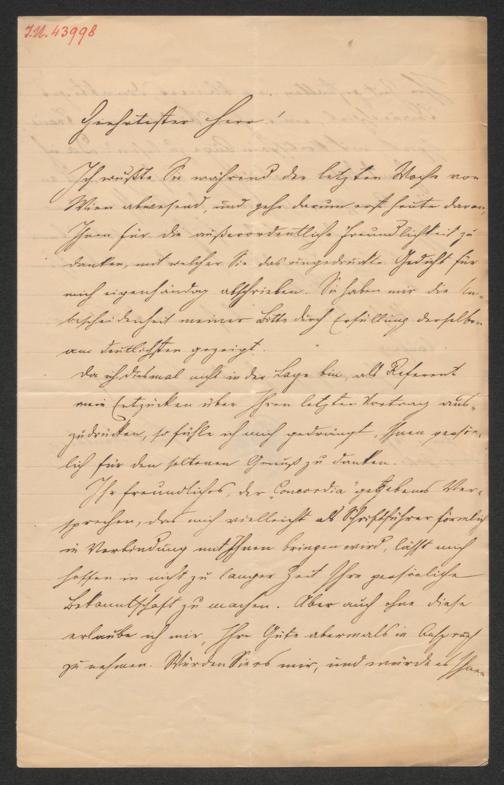 I.N. 43998
Geehrtester Herr!
Ich wußte Sie während der letzten Woche von
Wien abwesend, und gehe darum erst heute daran,
Ihnen für die außerordentliche Freundlichkeit zu
danken, mit welcher Sie das ungedruckte Gedicht für
mich eigenhändig abschrieben. Sie haben mir die Un-
bescheidenheit meiner Bitte durch Erfüllung derselben
am deutlichsten gezeigt.
Da ich diesmal nicht in der Lage bin, als Referent
mein Entzücken über Ihren letzten Vortrag aus-
zudrücken, so fühle ich mich gedrängt, Ihnen persön-
lich für den seltenen Genuß zu danken.
Ihr freundliches, der „Concordia" gegebenes Ver-
sprechen, das mich vielleicht als Schriftführer förmlich
in Verbindung mit Ihnen bringen wird, läßt mich
hoffen in nicht zu langer Zeit Ihre persönliche
Bekanntschaft zu machen. Aber auch ohne diese
erlaube ich mir, Ihre Güte abermals in Anspruch
zu nehmen. Würden Sie es mir, und würde es Ihnen